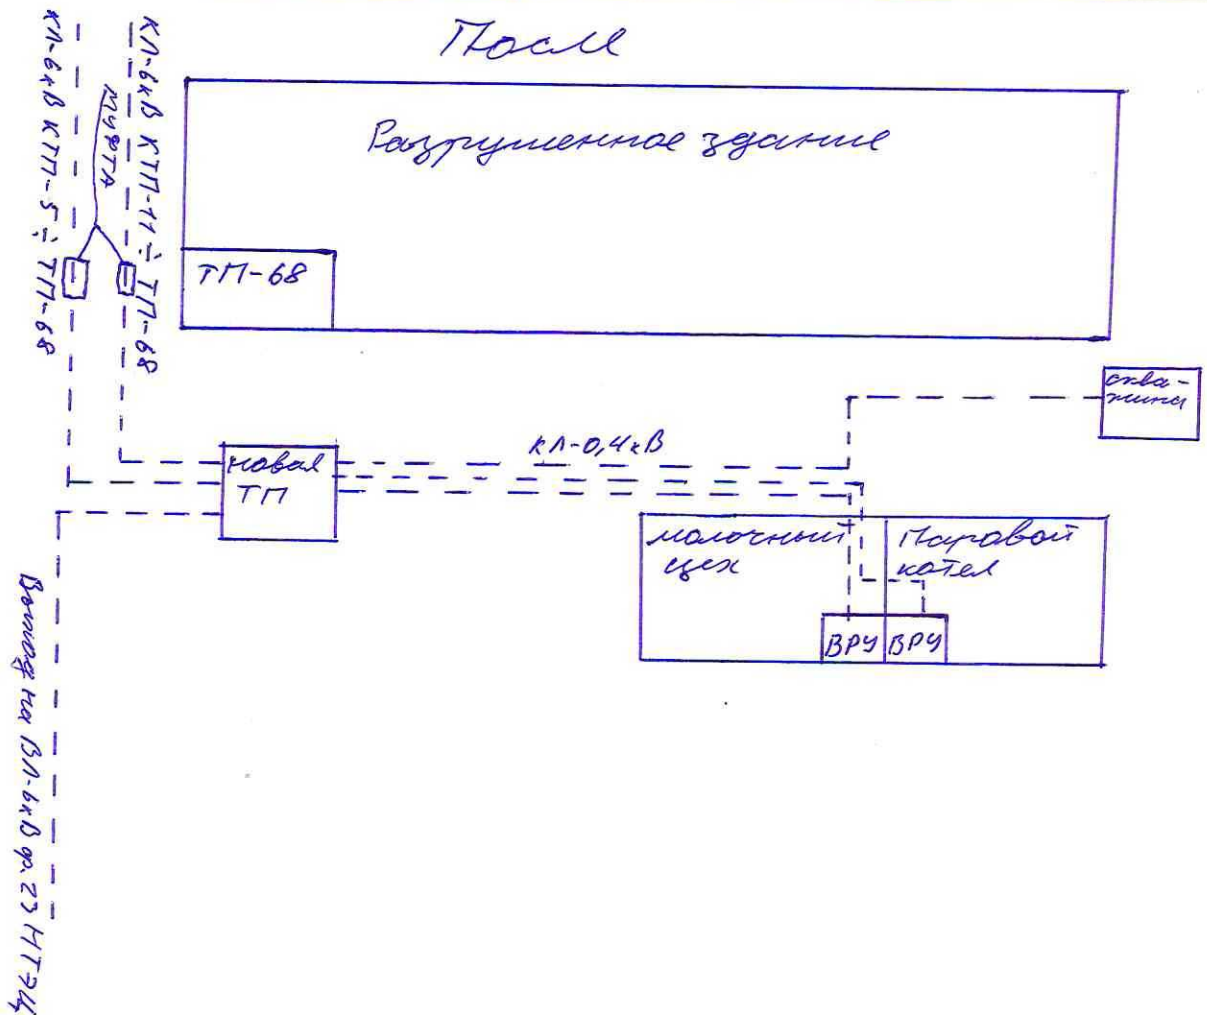 После
КЛ-6кВ КТП-5 ÷ ТП-68
муфта
КЛ-6кВ КТП-11 ÷ ТП-68
Разрушенное здание
ТП-68
сква-
жина
КЛ-0,4кВ
новая
ТП
молочный
цех
Паровой
котел
ВРУ
ВРУ
Выход на ВЛ-6кВ ф.23 НТЭЦ